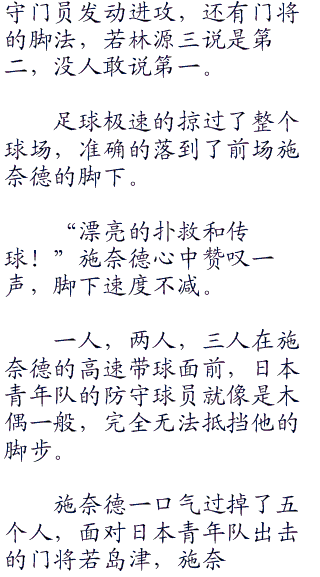 守门员发动进攻，还有门将
的脚法，若林源三说是第
二，没人敢说第一。
足球极速的掠过了整个
球场，准确的落到了前场施
奈德的脚下。
“漂亮的扑救和传
球！”施奈德心中赞叹一
声，脚下速度不减。
一人，两人，三人在施
奈德的高速带球面前，日本
青年队的防守球员就像是木
偶一般，完全无法抵挡他的
脚步。
施奈德一口气过掉了五
个人，面对日本青年队出击
的门将若岛津，施奈